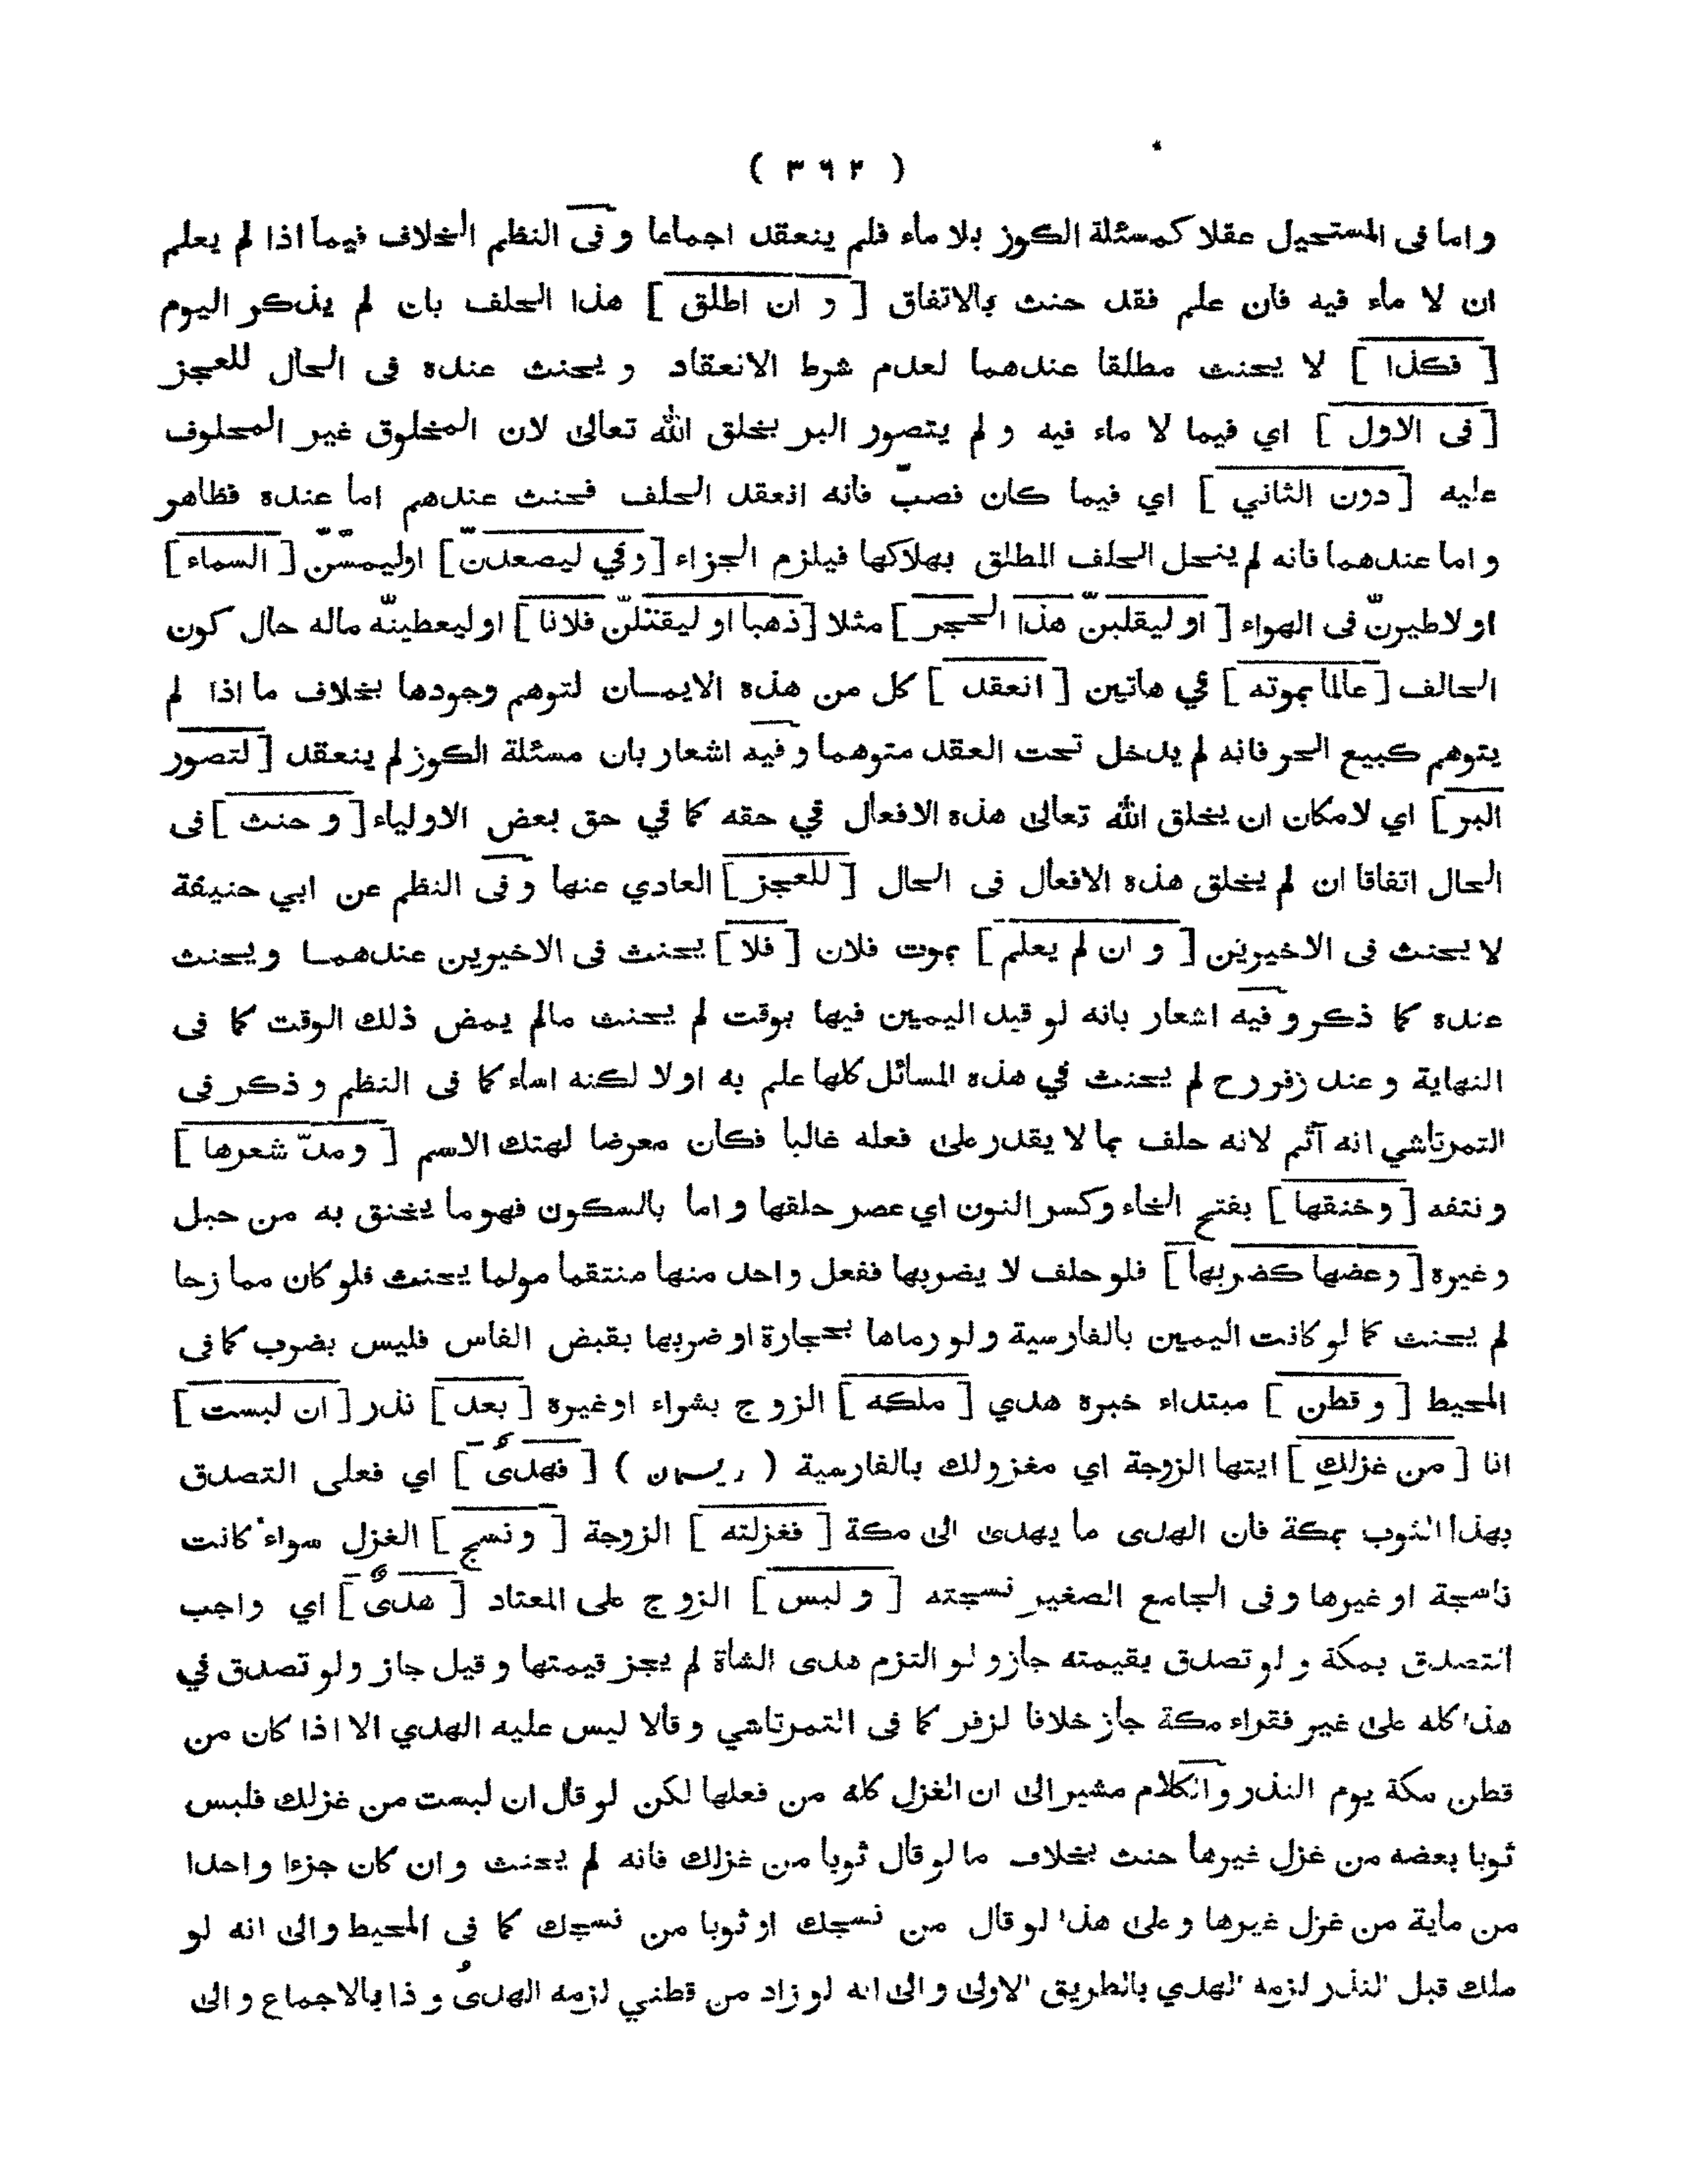 ( ٣٦٢ )
واما فى المستحيل عقلا كمسئلة الكوز بلا ماء فلم ينعقد اجماعا وفى النظم الخلاف فيما اذا لم يعلم
ان لا ماء فيه فان علم فقد حنث بالاتفاق [ و ان اطلق ] هذا الحلف بان لم يذكر اليوم
[ فكذا ] لا يحنث مطلقا عندهما لعدم شرط الانعقاد و يحنث عنده فى الحال للعجز
[ فى الاول ] اي فيما لا ماء فيه و لم يتصور البر بخلق الله تعالى لان المخلوق غير المحلوف
عليه [ دون الثاني ] اي فيما كان فصبّ فانه انعقد الحلف فحنث عندهم اما عنده فظاهر
و اما عندهما فانه لم ينحل الحلف المطلق بهلاكها فيلزم الجزاء [ وفي ليصعدنّ ] اوليمسّنّ [ السماء ]
او لاطيرنّ فى الهواء [ او ليقلبنّ هذا الحجر ] مثلا [ ذهبا او ليقتلنّ فلانا ] او ليعطينّه ماله حال كون
الحالف [ عالما بموته ] في هاتين [ انعقد ] كل من هذه الايمان لتوهم وجودها بخلاف ما اذا لم
يتوهم كبيع الحر فانه لم يدخل تحت العقد متوهما وفيه اشعار بان مسئلة الكوز لم ينعقد [ لتصور
البر ] اي لامكان ان يخلق الله تعالى هذه الافعال في حقه كما في حق بعض الاولياء [ و حنث ] فى
الحال اتفاقا ان لم يخلق هذه الافعال فى الحال [ للعجز ] العادي عنها وفى النظم عن ابي حنيفة
لا يحنث فى الاخيرين [ و ان لم يعلم ] بموت فلان [ فلا ] يحنث فى الاخيرين عندهما ويحنث
عنده كما ذكر وفيه اشعار بانه لو قيد اليمين فيها بوقت لم يحنث مالم يمض ذلك الوقت كما فى
النهاية و عند زفر رح لم يحنث في هذه المسائل كلها علم به اولا لكنه اساء كما فى النظم و ذكر فى
التمرتاشي انه آثم لانه حلف بما لا يقدر على فعله غالبا فكان معرضا لهتك الاسم [ ومدّ شعرها ]
و نتفه [ و خنقها ] بفتح الخاء وكسر النون اي عصر حلقها و اما بالسكون فهوما يخنق به من حبل
و غيره [ و عضها كضربها ] فلو حلف لا يضربها ففعل واحد منها منتقما مولما يحنث فلو كان مما زحا
لم يحنث كما لو كانت اليمين بالفارسية و لو رماها بحجارة او ضربها بقبض الفاس فليس بضرب كما فى
المحيط [ و قطن ] مبتداء خبره هدي [ ملكه ] الزوج بشراء اوغيره [ بعد ] نذر [ ان لبست ]
انا [ من غزلكِ ] ايتها الزوجة اي مغزولك بالفارسية ( ريسمان ) [ فهدىٌ ] اي فعلى التصدق
بهذا الثوب بمكة فان الهدى ما يهدى الى مكة [ فغزلته ] الزوجة [ و نسج ] الغزل سواء كانت
ناسجة او غيرها و فى الجامع الصغير نسجته [ و لبس ] الزوج على المعتاد [ هدىٌ ] اي واجب
التصدق بمكة و لو تصدق بقيمته جاز و لو التزم هدى الشاة لم يجز قيمتها و قيل جاز ولو تصدق في
هذا كله على غير فقراء مكة جاز خلافا لزفر كما فى التمرتاشي و قالا ليس عليه الهدي الا اذا كان من
قطن مكة يوم النذر والكلام مشير الى ان الغزل كله من فعلها لكن لو قال ان لبست من غزلك فلبس
ثوبا بعضه من غزل غيرها حنث بخلاف ما لو قال ثوبا من غزلك فانه لم يحنث و ان كان جزءا واحدا
من ماية من غزل غيرها و على هذا لو قال من نسجك او ثوبا من نسجك كما فى المحيط والى انه لو
ملك قبل النذر لزمه الهدي بالطريق الاولى و الى انه لو زاد من قطني لزمه الهدىُ و ذا بالاجماع و الى